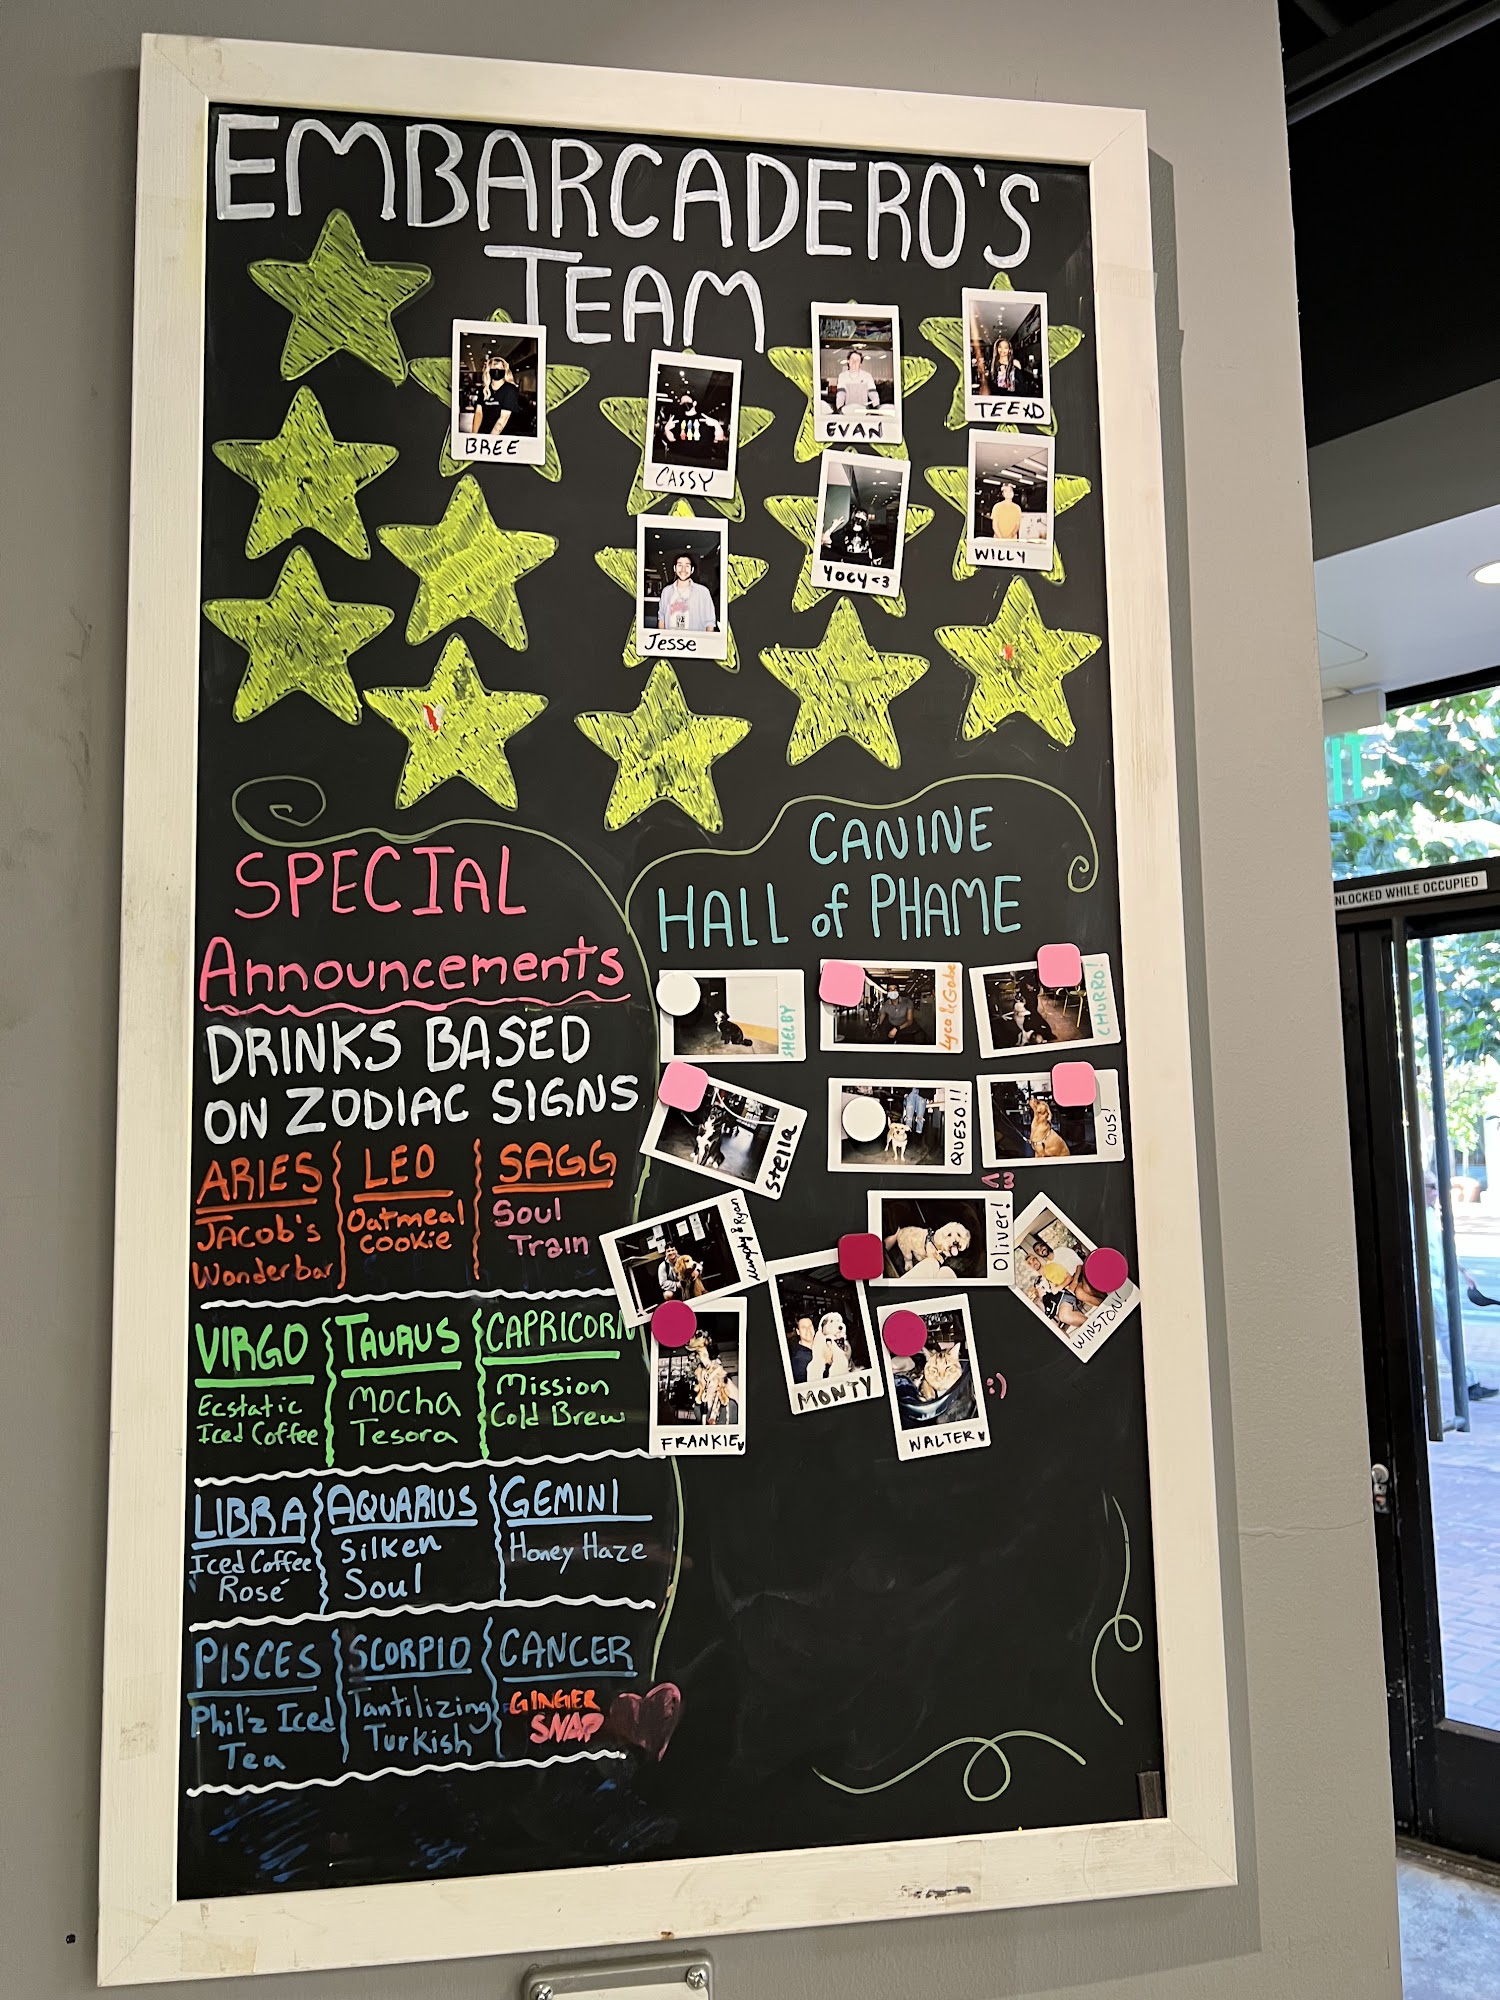 EMBARCADERO'S
TEAM
BREE
CASSY
EVAN
TEEXD
Jesse
YOCY <3
WILLY
SPECIAL
Announcements
DRINKS BASED
ON ZODIAC SIGNS
ARIES
JACOB'S
Wonderbar
LEO
Oatmeal
COOKIE
SAGG
Soul
Train
VIRGO
Ecstatic
Iced Coffee
TAURUS
MOCHA
Tesora
CAPRICORN
Mission
Cold Brew
LIBRA
Iced Coffee
Rosé
AQUARIUS
Silken
Soul
GEMINI
Honey Haze
PISCES
Phil'z Iced
Tea
SCORPIO
Tantilizing
Turkish
CANCER
GINGER
SNAP
CANINE
HALL of PHAME
SHELBY
Lyco & Gabe
CHURRO!
Stella
QUESO!!
GUS!
<3
Murphy & Ryan
Oliver!
WINSTON!
MONTY
FRANKIE
WALTER
:)
NLOCKED WHILE OCCUPIED